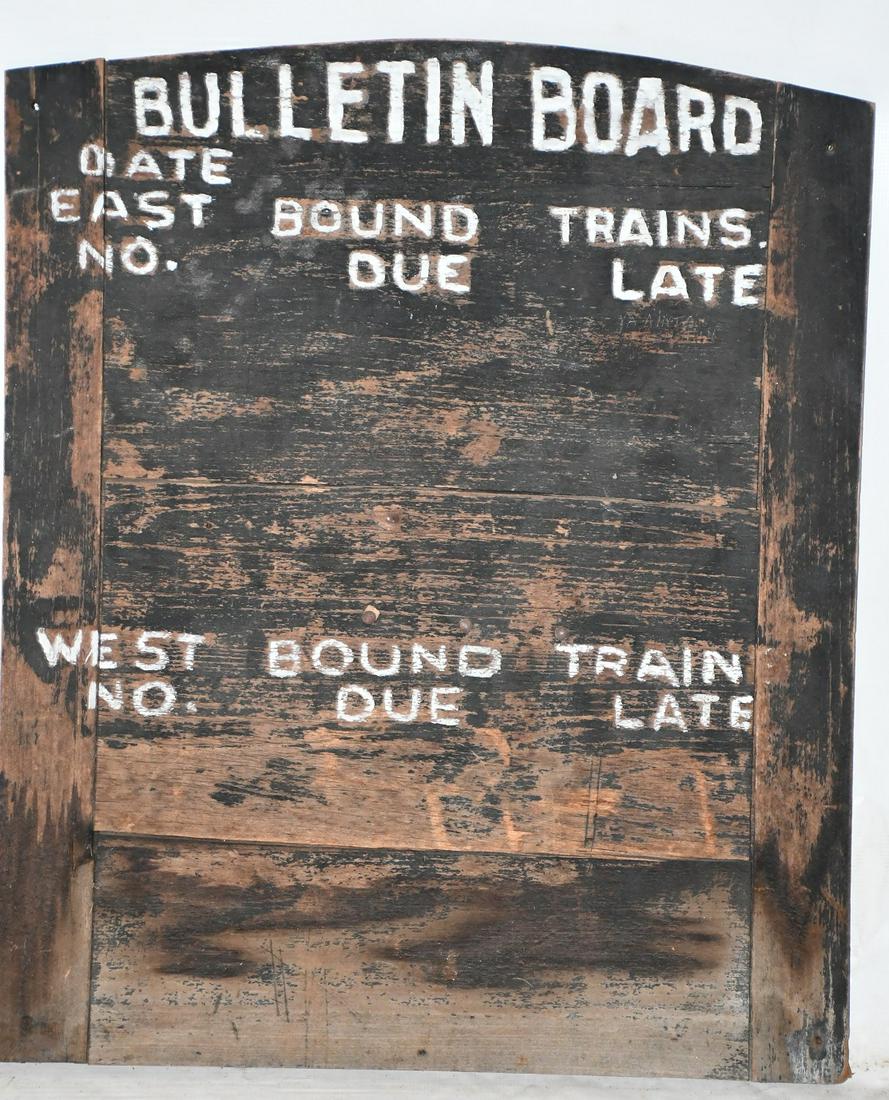 BULLETIN BOARD
DATE
EAST BOUND TRAINS.
NO. DUE LATE
WEST BOUND TRAIN
NO. DUE LATE